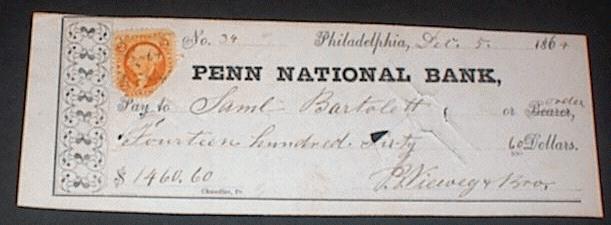 No. 34 Philadelphia, Dec. 5. 1864
PENN NATIONAL BANK,
Pay to Saml. Bartolett or Bearer, order
Fourteen hundred Sixty 60 Dollars.
$ 1460.60 P. Vieweg & Bro.